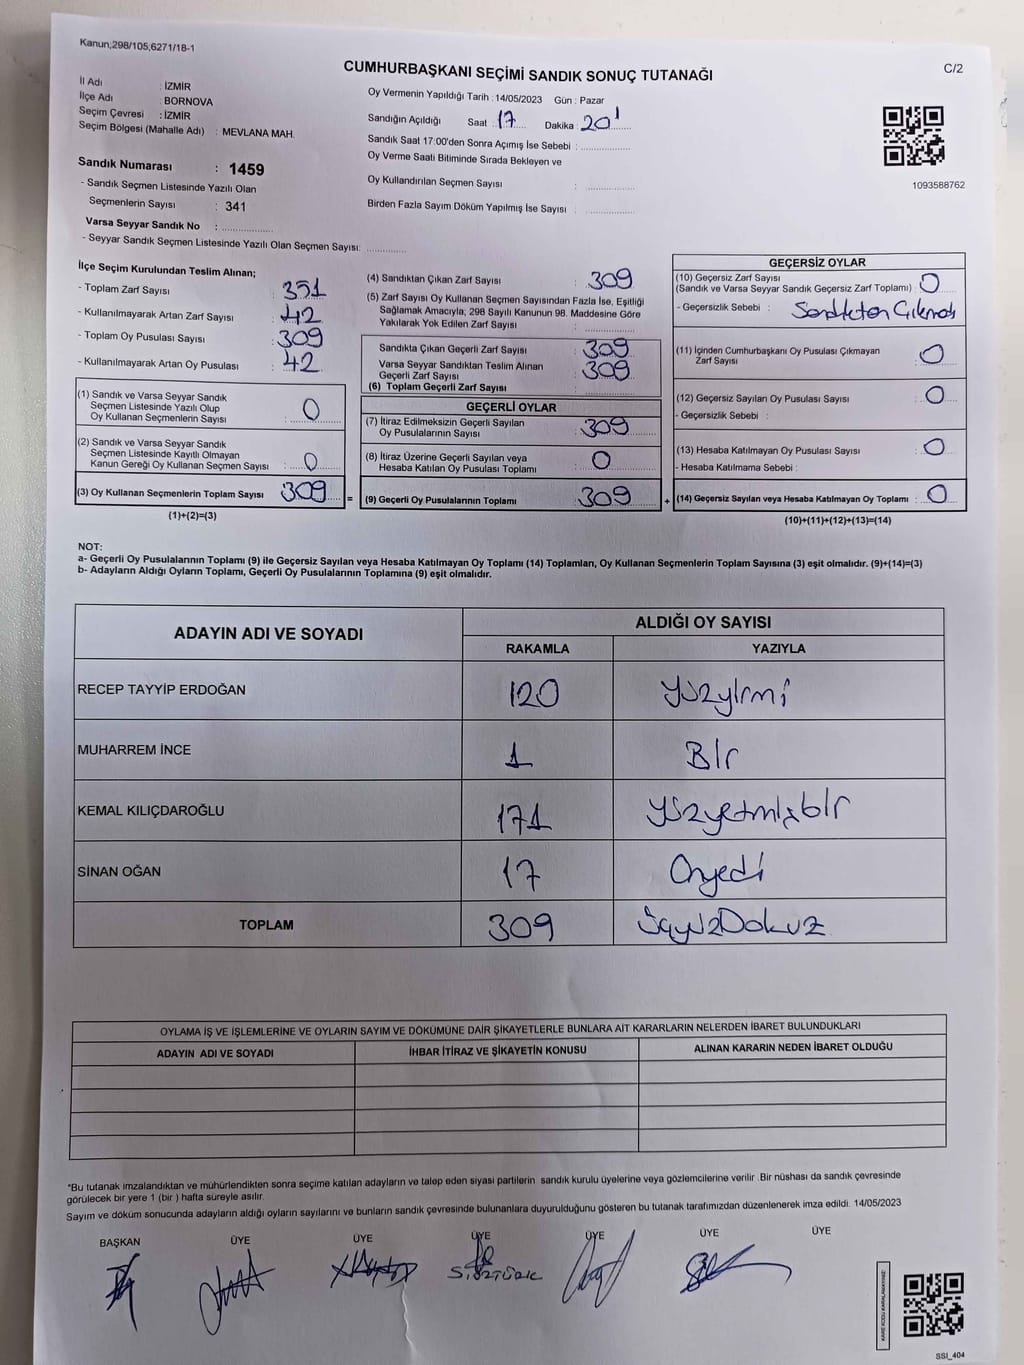 Kanun,298/105,6271/18-1
CUMHURBAŞKANI SEÇİMİ SANDIK SONUÇ TUTANAĞI
C/2
İl Adı : İZMİR
İlçe Adı : BORNOVA
Seçim Çevresi : İZMİR
Seçim Bölgesi (Mahalle Adı) : MEVLANA MAH.
Sandık Numarası : 1459
- Sandık Seçmen Listesinde Yazılı Olan
Seçmenlerin Sayısı : 341
Varsa Seyyar Sandık No : ..................
- Seyyar Sandık Seçmen Listesinde Yazılı Olan Seçmen Sayısı: .............
Oy Vermenin Yapıldığı Tarih : 14/05/2023 Gün : Pazar
Sandığın Açıldığı Saat : 17 Dakika : 20
Sandık Saat 17:00'den Sonra Açımış İse Sebebi : ................
Oy Verme Saati Bitiminde Sırada Bekleyen ve
Oy Kullandırılan Seçmen Sayısı : ................
Birden Fazla Sayım Döküm Yapılmış İse Sayısı : ................
1093588762
İlçe Seçim Kurulundan Teslim Alınan;
- Toplam Zarf Sayısı : 351
- Kullanılmayarak Artan Zarf Sayısı : 42
- Toplam Oy Pusulası Sayısı : 309
- Kullanılmayarak Artan Oy Pusulası : 42
(1) Sandık ve Varsa Seyyar Sandık
Seçmen Listesinde Yazılı Olup
Oy Kullanan Seçmenlerin Sayısı : 0
(2) Sandık ve Varsa Seyyar Sandık
Seçmen Listesinde Kayıtlı Olmayan
Kanun Gereği Oy Kullanan Seçmen Sayısı : 0
(3) Oy Kullanan Seçmenlerin Toplam Sayısı 309 =
(1)+(2)=(3)
(4) Sandıktan Çıkan Zarf Sayısı : 309
(5) Zarf Sayısı Oy Kullanan Seçmen Sayısından Fazla İse, Eşitliği
Sağlamak Amacıyla; 298 Sayılı Kanunun 98. Maddesine Göre
Yakılarak Yok Edilen Zarf Sayısı : ................
Sandıkta Çıkan Geçerli Zarf Sayısı : 309
Varsa Seyyar Sandıktan Teslim Alınan
Geçerli Zarf Sayısı : 309
(6) Toplam Geçerli Zarf Sayısı :
GEÇERLİ OYLAR
(7) İtiraz Edilmeksizin Geçerli Sayılan
Oy Pusulalarının Sayısı : 309
(8) İtiraz Üzerine Geçerli Sayılan veya
Hesaba Katılan Oy Pusulası Toplamı : 0
(9) Geçerli Oy Pusulalarının Toplamı : 309 +
GEÇERSİZ OYLAR
(10) Geçersiz Zarf Sayısı
(Sandık ve Varsa Seyyar Sandık Geçersiz Zarf Toplamı) : 0
- Geçersizlik Sebebi :
(11) İçinden Cumhurbaşkanı Oy Pusulası Çıkmayan
Zarf Sayısı : 0
(12) Geçersiz Sayılan Oy Pusulası Sayısı : 0
- Geçersizlik Sebebi :
(13) Hesaba Katılmayan Oy Pusulası Sayısı : 0
- Hesaba Katılmama Sebebi :
(14) Geçersiz Sayılan veya Hesaba Katılmayan Oy Toplamı : 0
(10)+(11)+(12)+(13)=(14)
NOT:
a- Geçerli Oy Pusulalarının Toplamı (9) ile Geçersiz Sayılan veya Hesaba Katılmayan Oy Toplamı (14) Toplamları, Oy Kullanan Seçmenlerin Toplam Sayısına (3) eşit olmalıdır. (9)+(14)=(3)
b- Adayların Aldığı Oyların Toplamı, Geçerli Oy Pusulalarının Toplamına (9) eşit olmalıdır.
ADAYIN ADI VE SOYADI ALDIĞI OY SAYISI
RAKAMLA YAZIYLA
RECEP TAYYİP ERDOĞAN 120 Yüzyirmi
MUHARREM İNCE 1 Bir
KEMAL KILIÇDAROĞLU 171 Yüzyetmişbir
SİNAN OĞAN 17 Onyedi
TOPLAM 309 ÜçyüzDokuz
OYLAMA İŞ VE İŞLEMLERİNE VE OYLARIN SAYIM VE DÖKÜMÜNE DAİR ŞİKAYETLERLE BUNLARA AİT KARARLARIN NELERDEN İBARET BULUNDUKLARI
ADAYIN ADI VE SOYADI İHBAR İTİRAZ VE ŞİKAYETİN KONUSU ALINAN KARARIN NEDEN İBARET OLDUĞU
*Bu tutanak imzalandıktan ve mühürlendikten sonra seçime katılan adayların ve talep eden siyasi partilerin sandık kurulu üyelerine veya gözlemcilerine verilir. Bir nüshası da sandık çevresinde
görülecek bir yere 1 (bir ) hafta süreyle asılır.
Sayım ve döküm sonucunda adayların aldığı oyların sayılarını ve bunların sandık çevresinde bulunanlara duyurulduğunu gösteren bu tutanak tarafımızdan düzenlenerek imza edildi. 14/05/2023
BAŞKAN ÜYE ÜYE ÜYE ÜYE ÜYE ÜYE
S.ÖZTÜRK
KARE KODU KARALAMAYINIZ!
SSI_404